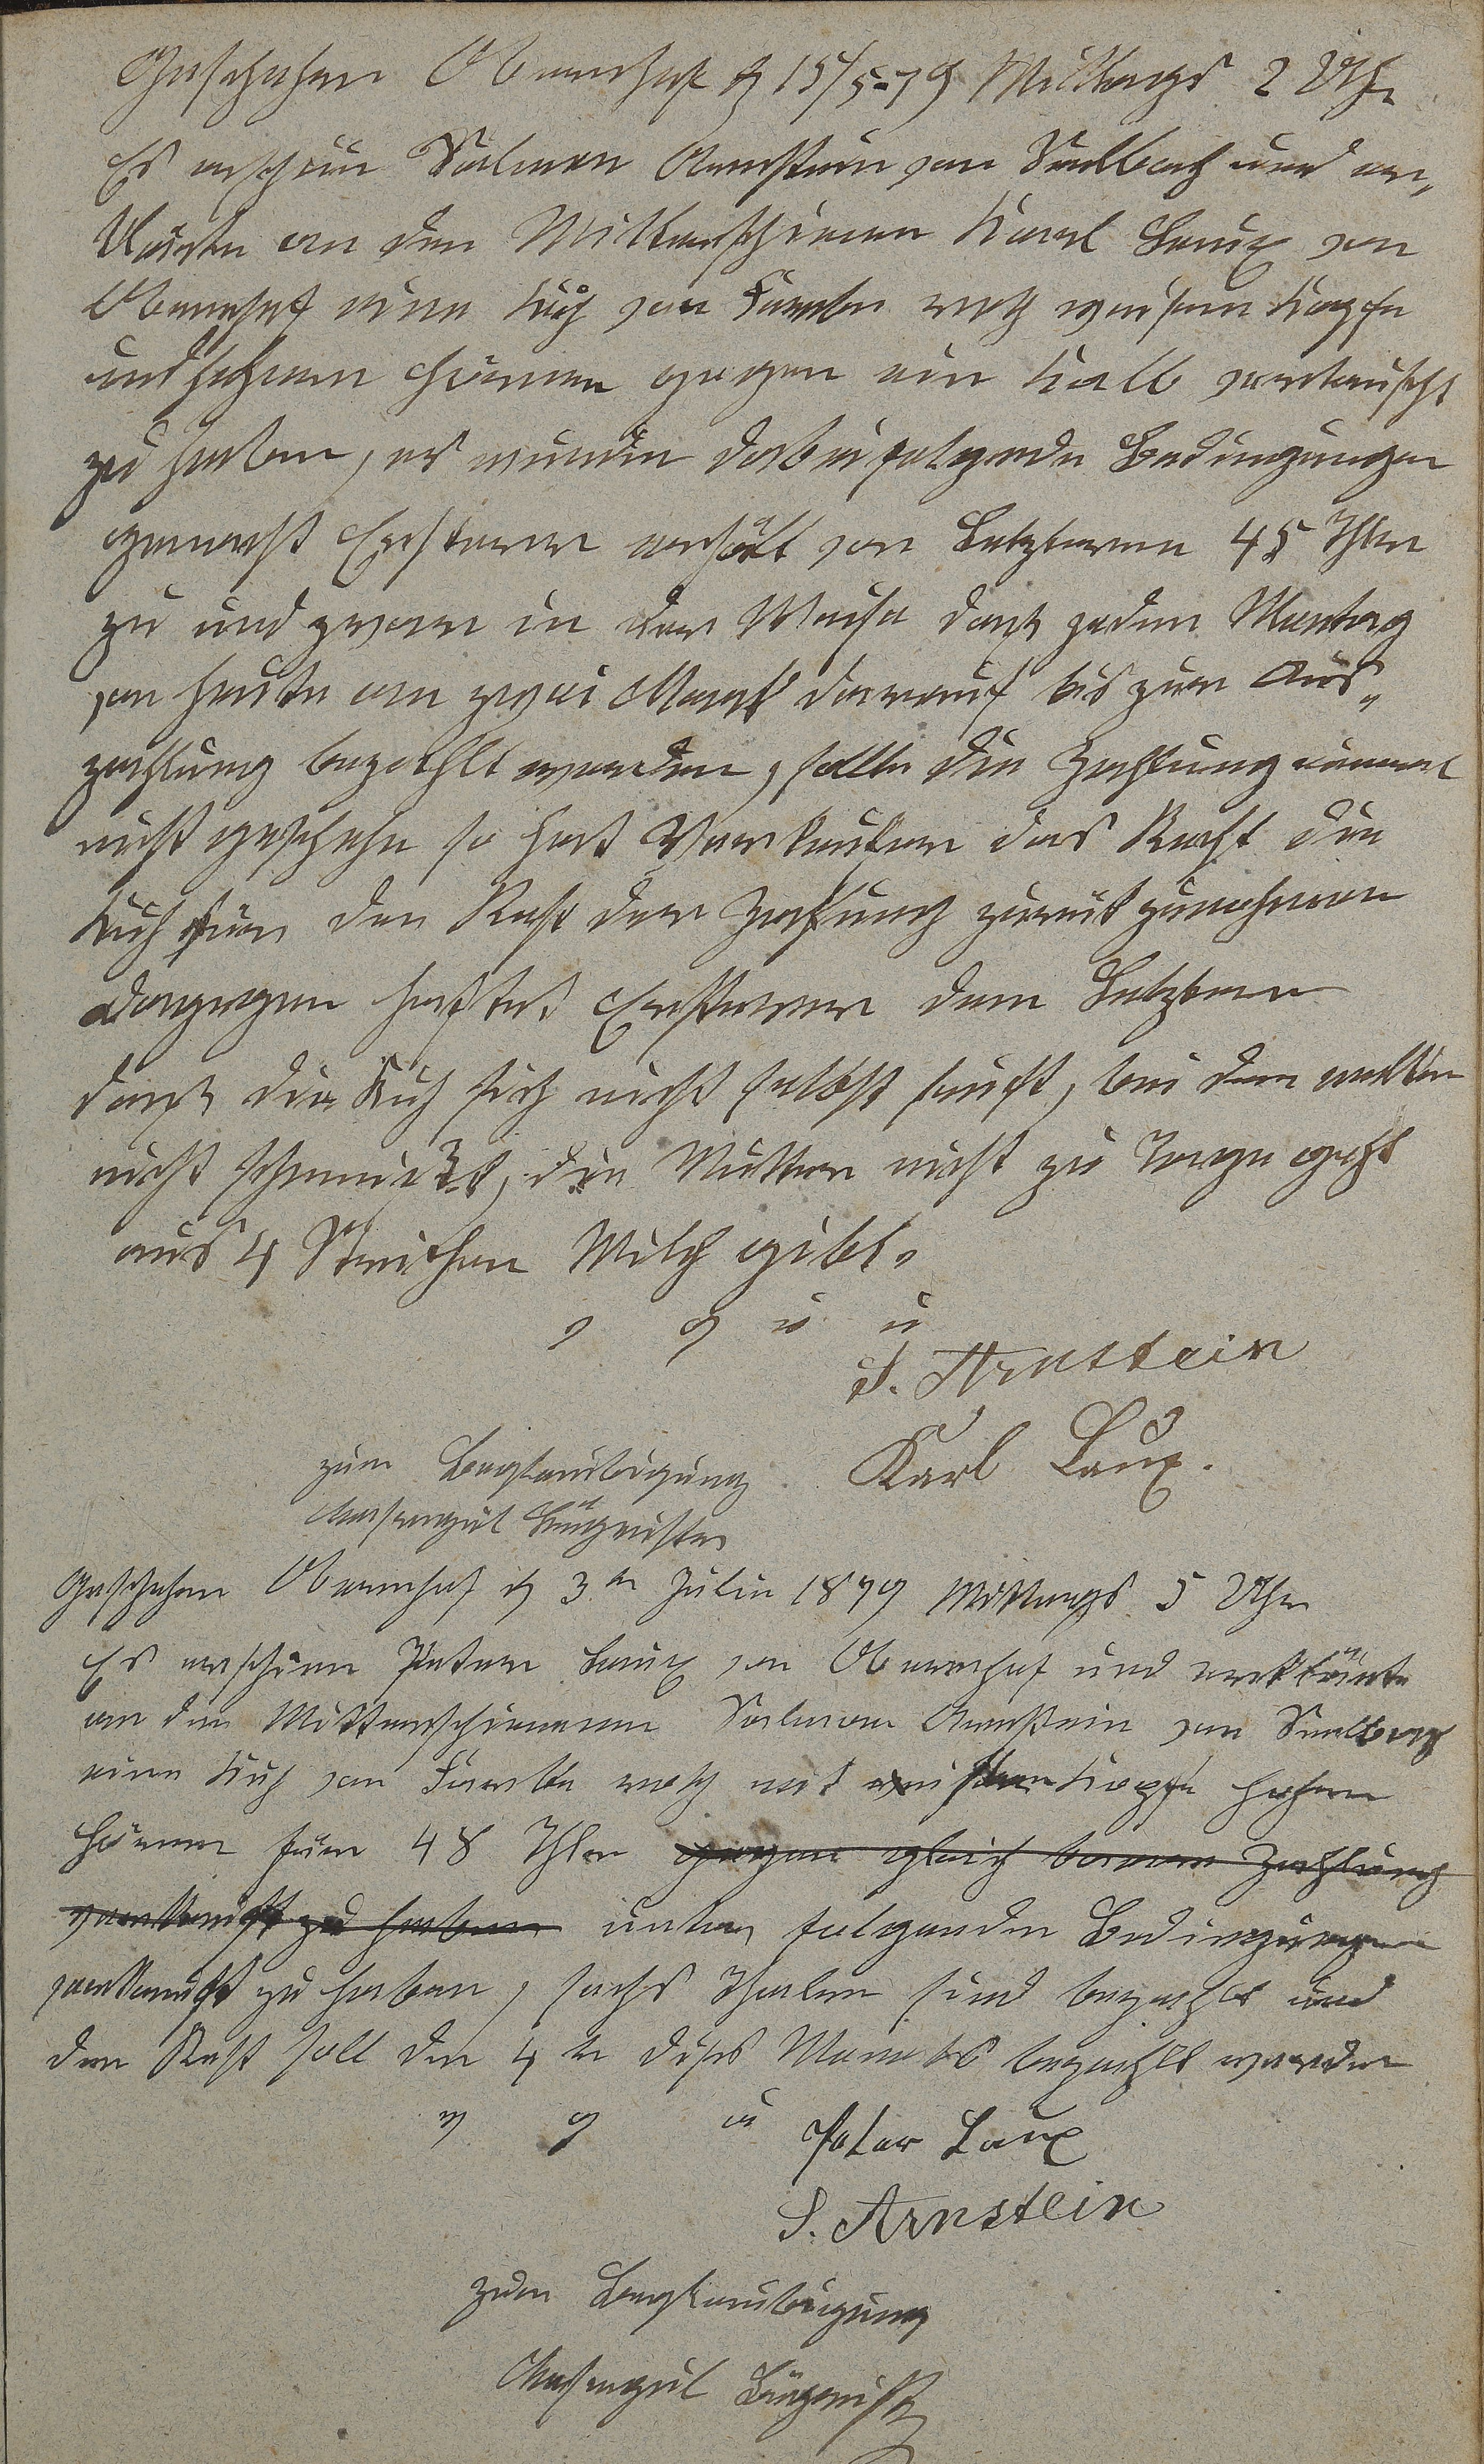 Geschehen Obernhof d 15/5-79 Mittags 2 Uhr
Es erschien Salmon Arnstein von Seelbach und er„
klärte an den Miterschienen Karl Laux von
Obernhof eine Kuh von Farbe roth weisem Kopfe
und hohen Hörner gegen ein Kalb vertauscht
zu haben, es wurden dabei folgende Bedingungen
gemacht Ersterer erhält von Letzterem 45 Thlr
zu und zwar in der Weise daß jeden Montag
von heute an zwei Mark darauf bis zur Aus„
zahlung bezahlt werden, sollte die Zahlung einmal
nicht geschehe so hat Verkäufer das Recht die
Kuh für den Rest der Zahlung zurük zunehmen
dagegen haftet Ersterer dem Letztern
daß die Kuh sich nicht selbst sauft, bei dem melken
nicht schmeißt, die Mutter nicht zu Tage geht
aus 4 Strichen Milch gibt.
v g u u
S. Arnstein
Karl Laux.
zur Beglaubigung
Bürgmeister
Geschehen Obernhof d 3ten Julie 1879 Mittags 5 Uhr
Es erschien Peter Laux von Obernhof und erklärte
an den Miterschienenen Salmon Arnstein von Seelbach
eine Kuh von Farbe roth mit weisem Kopfe hohen
Hörner für 48 Thlr gegen gleich baare Zahlung
verkauft zu haben unter folgenden Bedingungen
verkauft zu haben, sechs Thaler sind bezahlt und
der Rest soll den 4te dises Monats bezahlt werden
v g u
Peter Laux
S. Arnstein
zur Beglaubigung
Bürgmeister